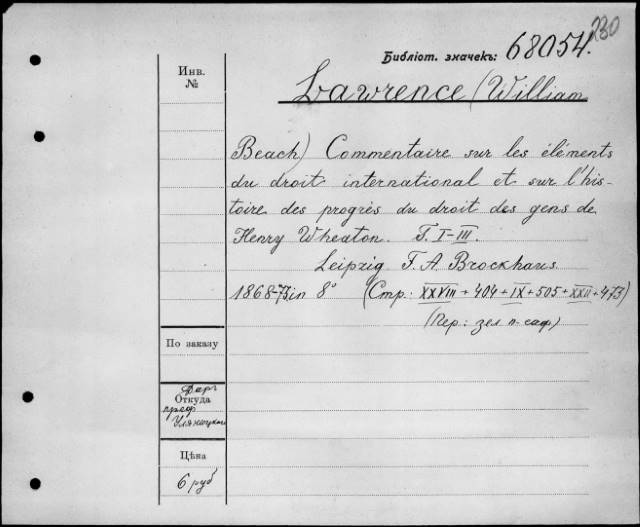 230
Библіот. значекъ: 68054.
Инв.
№
Lawrence (William
Beach) Commentaire sur les éléments
du droit international et sur l'his-
toire des progrès du droit des gens de
Henry Wheaton. T. I-III.
Leipzig F. A. Brockhaus
1868-73 in 8° (Стр.: XXVIII + 404 + IX + 505 + XXII + 473)
(Пер: зел п. саф)
По заказу
Дарг
Откуда
проф
Уляницкаго
Цѣна
6 руб